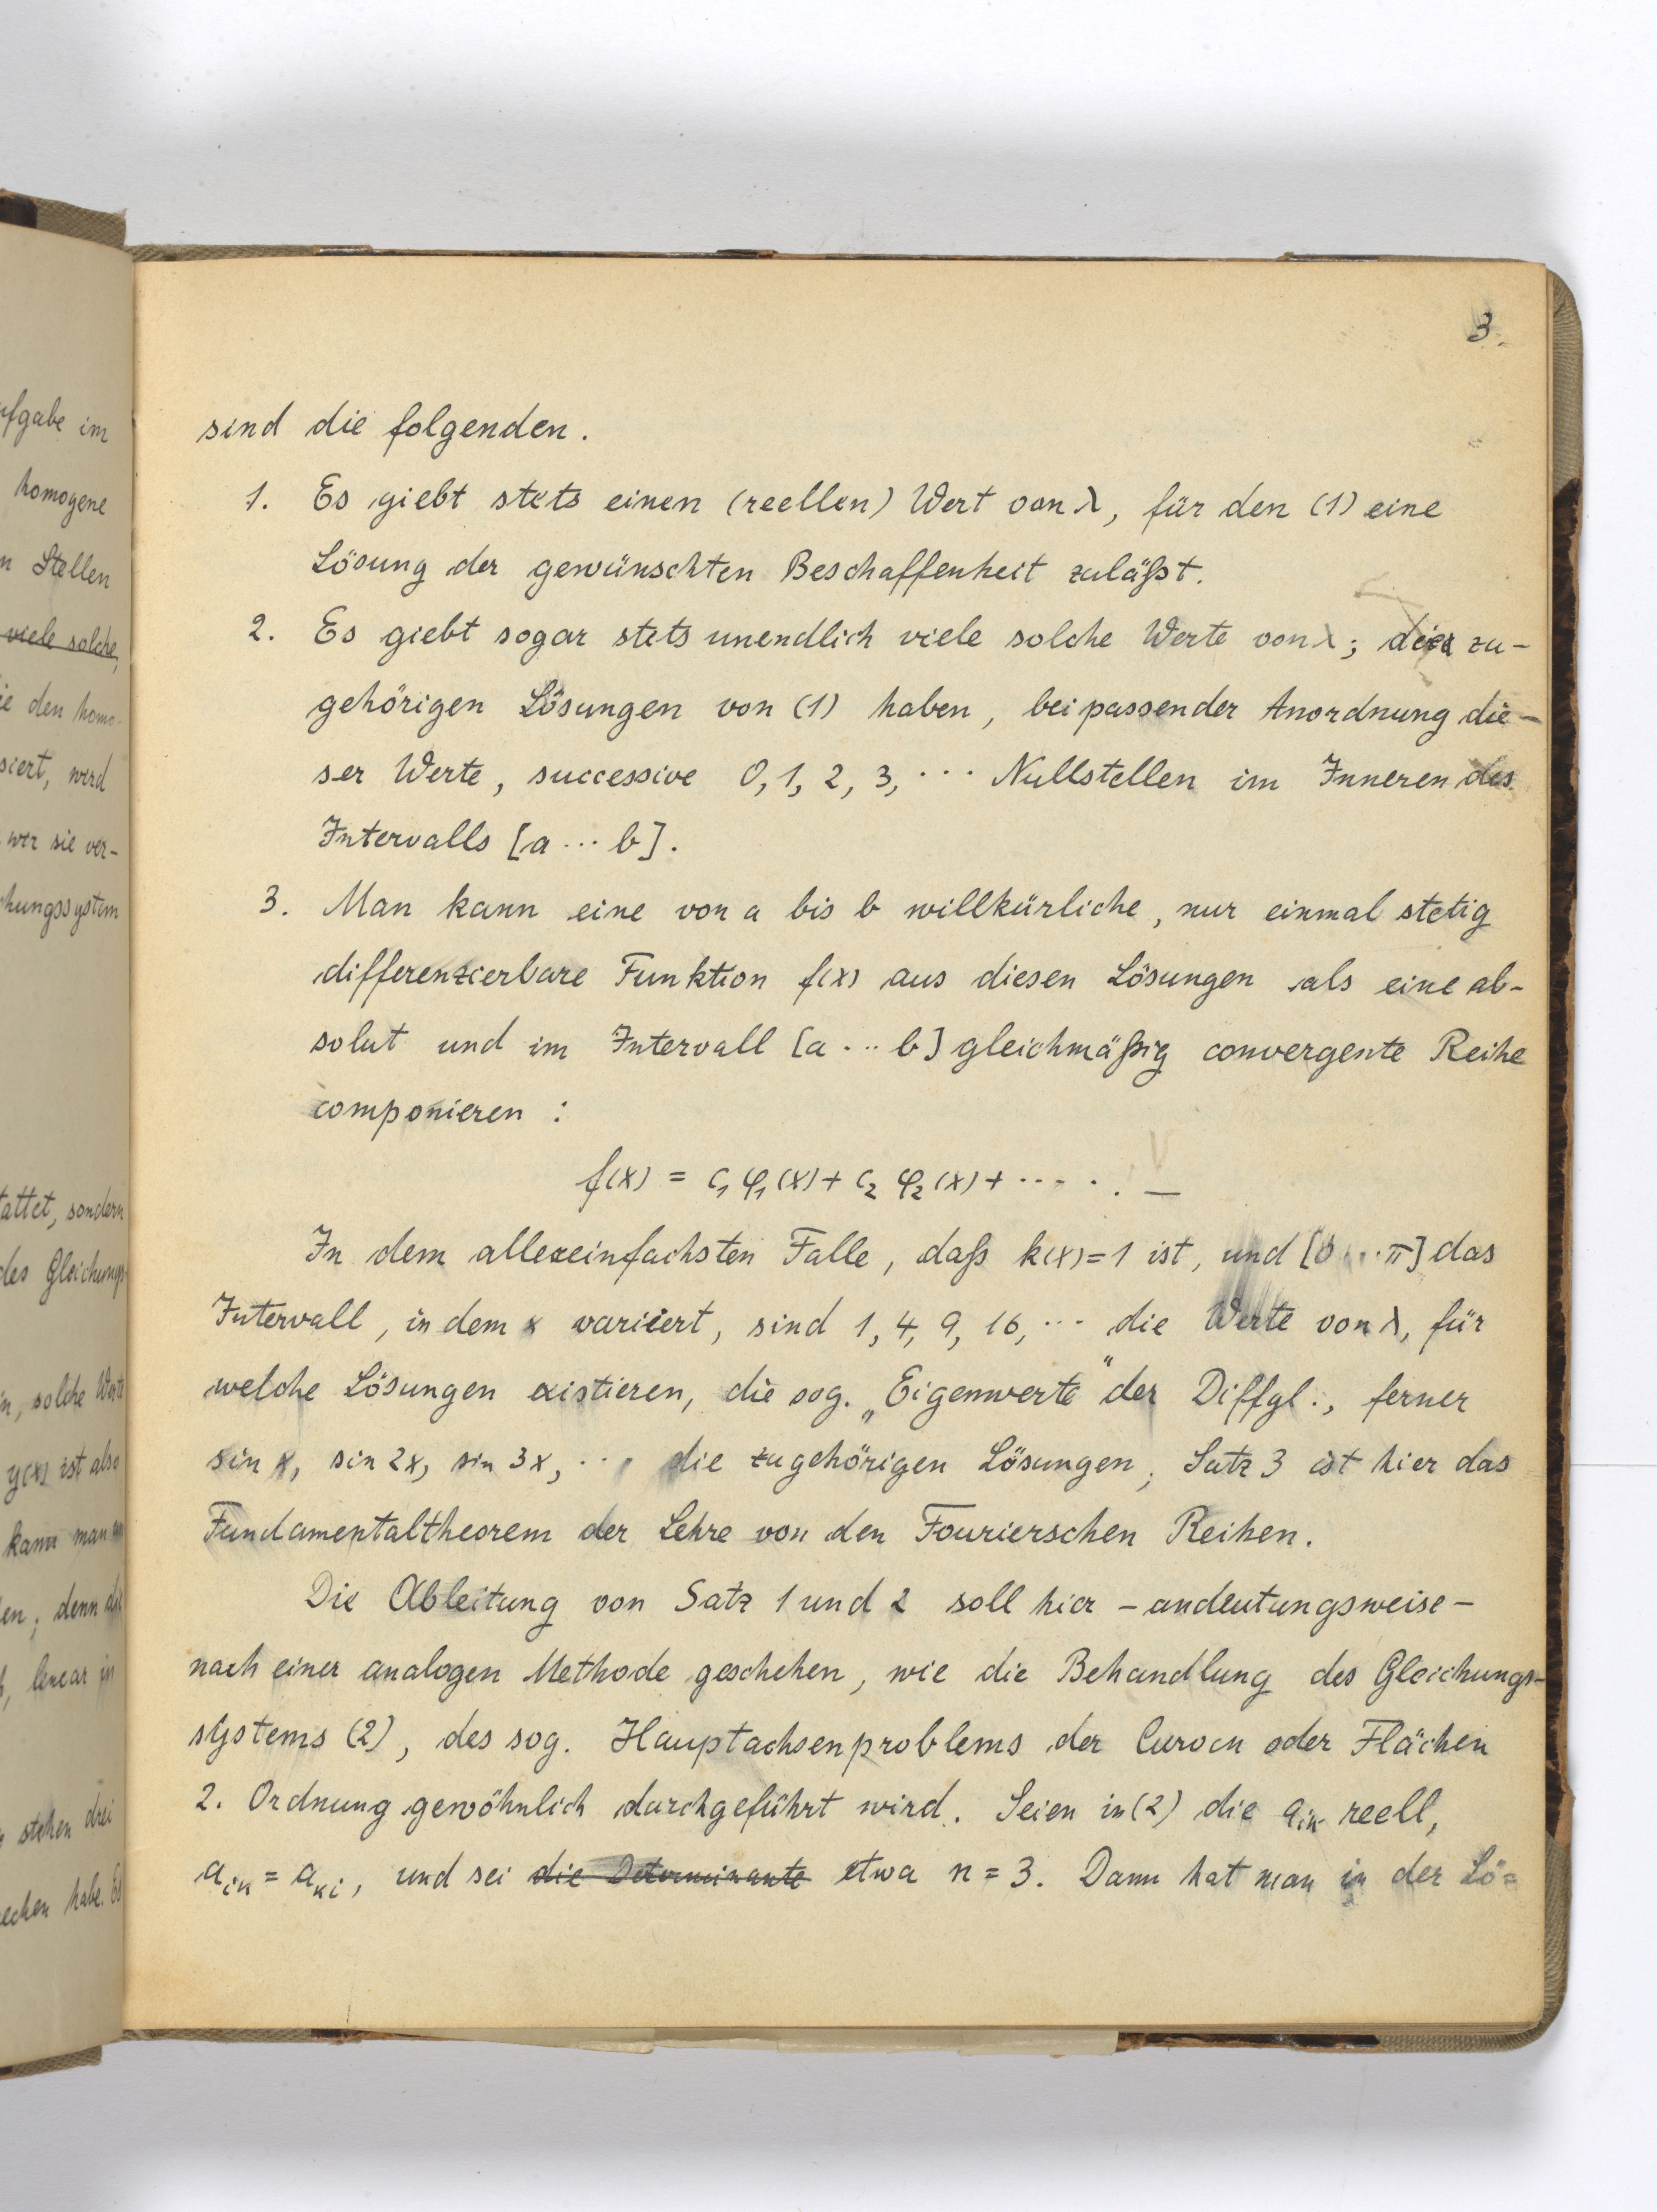 ufgabe im
homogene
n Stellen
viele solche,
ie den homo-
siert, wird
wir sie ver-
hungssystem
tattet, sondern
des Gleichungs-
n, solche Werte
y(x) ist also
kann man
en; denn
linear in
stehen drei
echen habe. Es
3.
sind die folgenden.
1. Es giebt stets einen (reellen) Wert von λ, für den (1) eine
Lösung der gewünschten Beschaffenheit zuläßt.
2. Es giebt sogar stets unendlich viele solche Werte von λ; die zu-
gehörigen Lösungen von (1) haben, bei passender Anordnung die-
ser Werte, successive 0, 1, 2, 3, ··· Nullstellen im Inneren des
Intervalls [a ··· b].
3. Man kann eine von a bis b willkürliche, nur einmal stetig
differenzierbare Funktion f(x) aus diesen Lösungen als eine ab-
solut und im Intervall [a ··· b] gleichmäßig convergente Reihe
componieren :
f(x) = c₁ φ₁(x) + c₂ φ₂(x) + ····· . —
In dem allereinfachsten Falle, daß k(x) = 1 ist, und [0 ··· π] das
Intervall, in dem x variiert, sind 1, 4, 9, 16, ··· die Werte von λ, für
welche Lösungen existieren, die sog. „Eigenwerte" der Diffgl., ferner
sin x, sin 2x, sin 3x, ··· die zugehörigen Lösungen; Satz 3 ist hier das
Fundamentaltheorem der Lehre von den Fourierschen Reihen.
Die Ableitung von Satz 1 und 2 soll hier – andeutungsweise –
nach einer analogen Methode geschehen, wie die Behandlung des Gleichungs-
systems (2), des sog. Hauptachsenproblems der Curven oder Flächen
2. Ordnung gewöhnlich durchgeführt wird. Seien in (2) die aᵢₖ reell,
aᵢₖ = aₖᵢ, und sei die Determinante etwa n = 3. Dann hat man in der Lö=